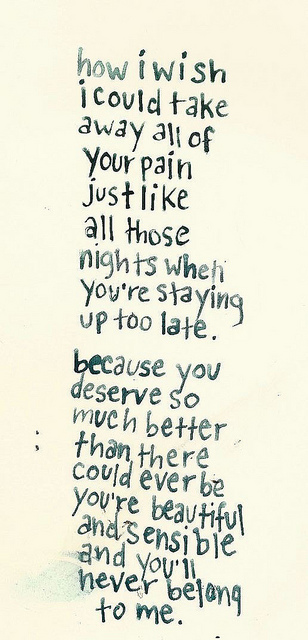 how i wish
i could take
away all of
your pain
just like
all those
nights when
you're staying
up too late.
because you
deserve so
much better
than there
could ever be
you're beautiful
and sensible
and you'll
never belong
to me.